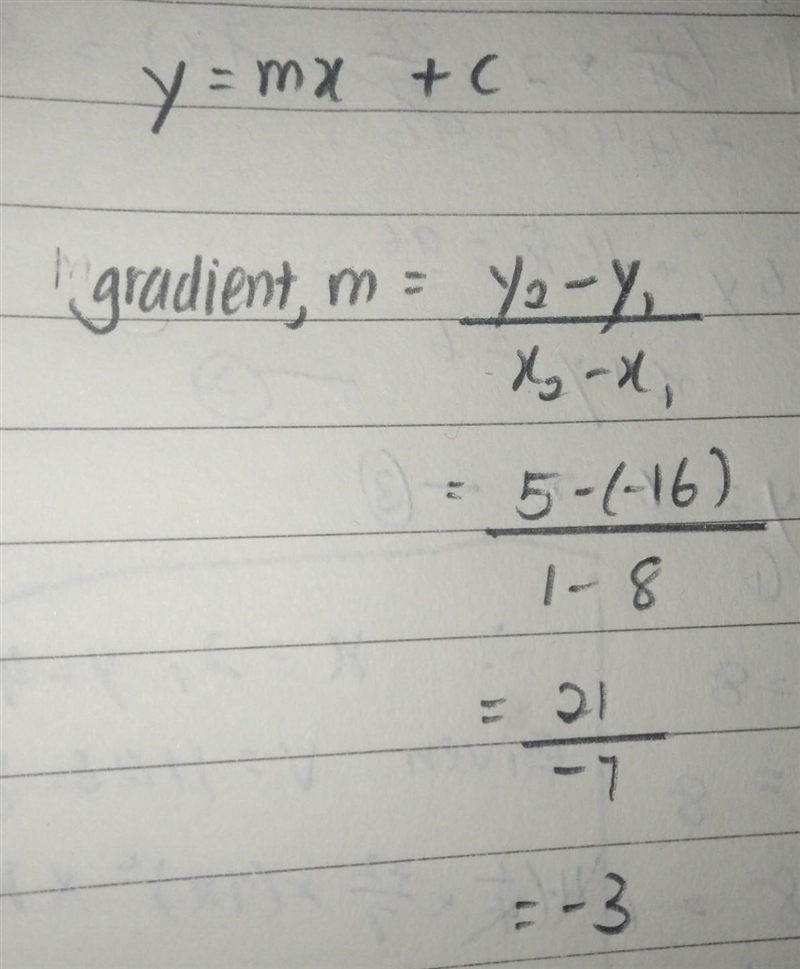 y = mx + c
gradient, m = y₂ - y₁
x₂ - x₁
= 5 - (-16)
1 - 8
= 21
-7
= -3